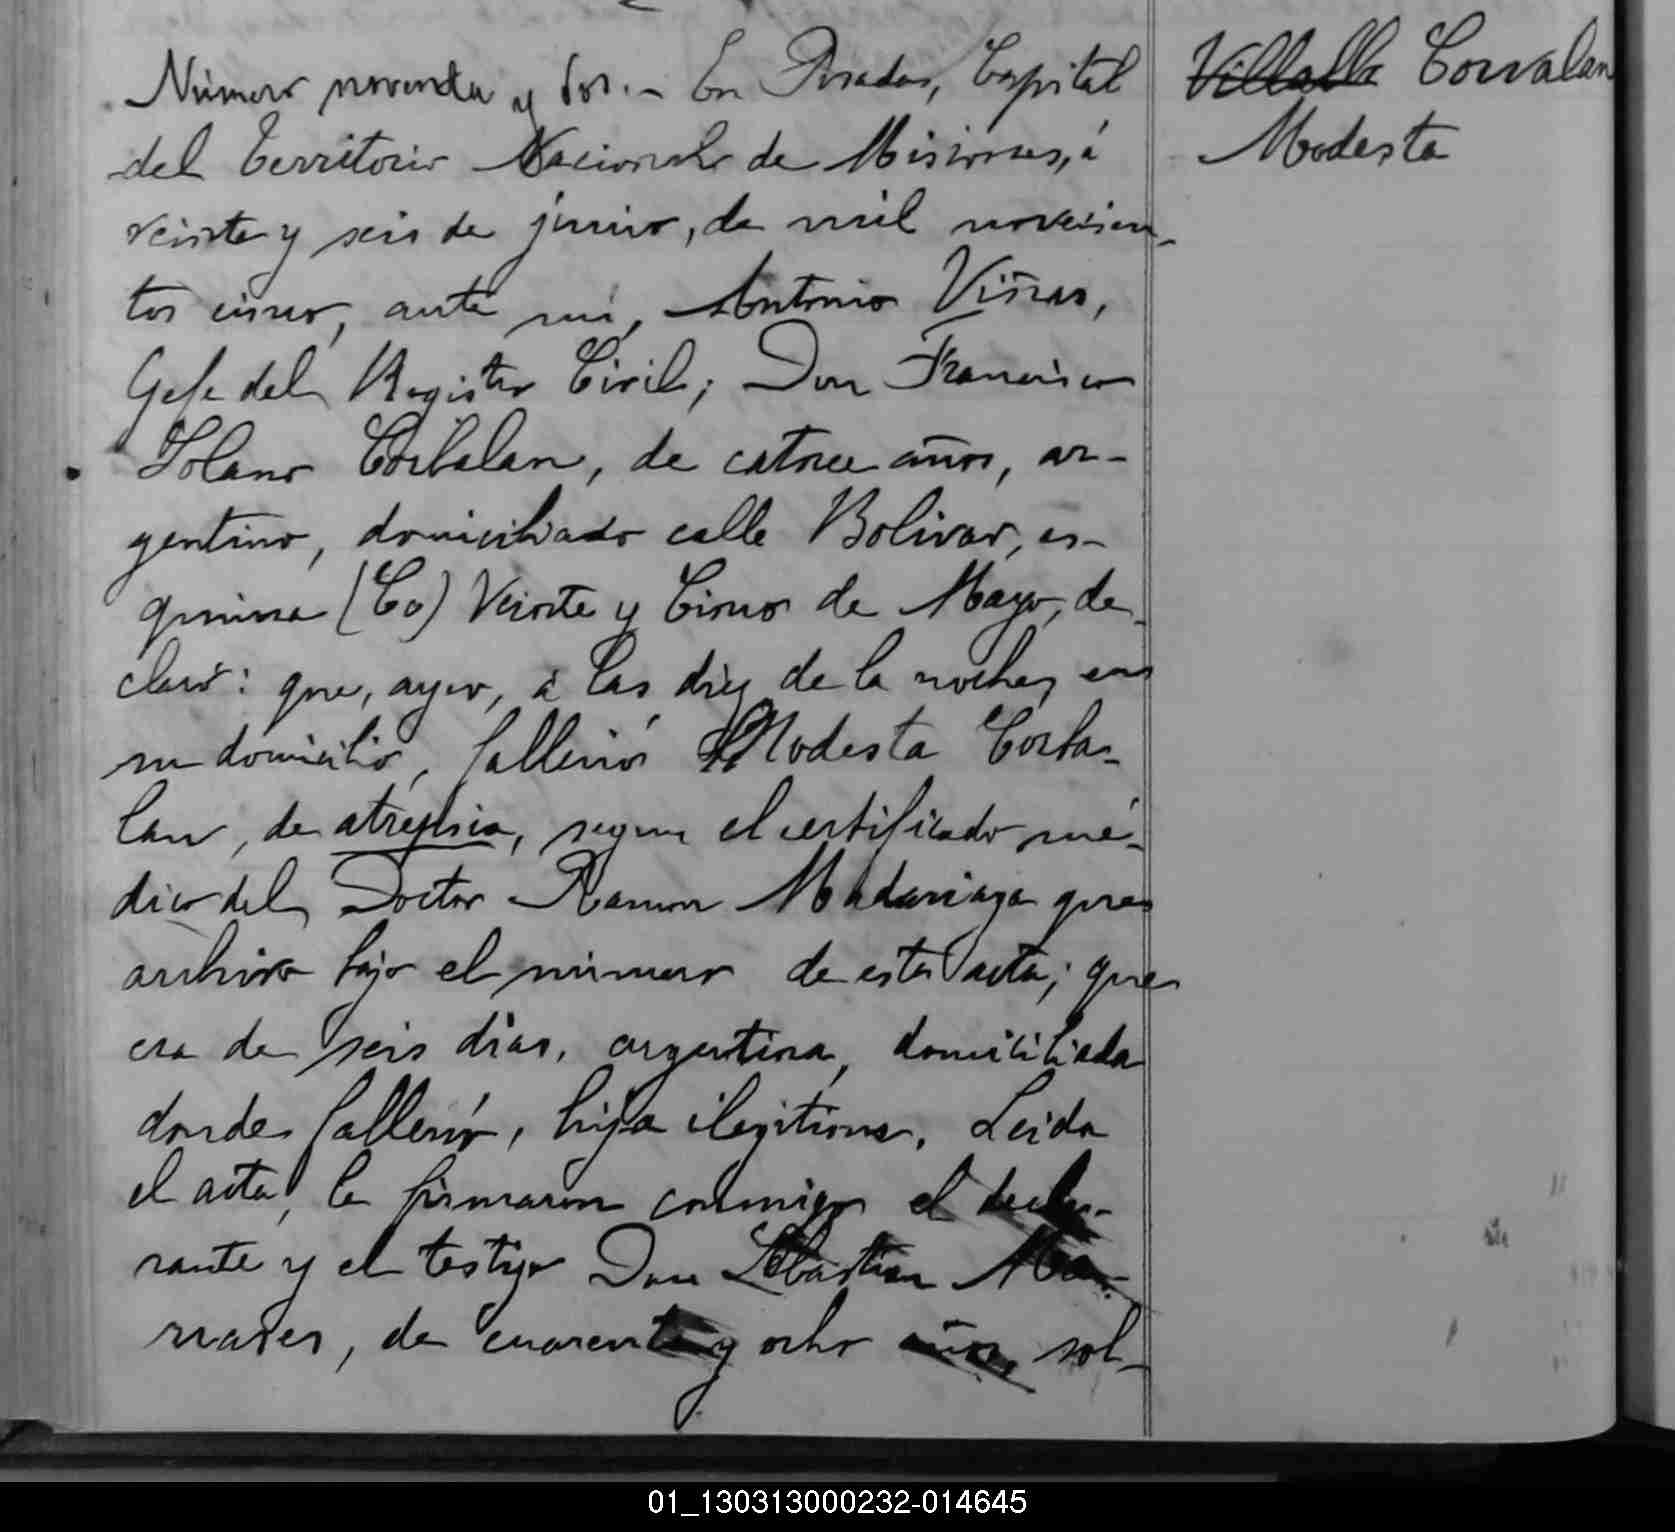 Número noventa y dos.- En Posadas, Capital
del Territorio Nacional de Misiones, á
veinte y seis de junio, de mil novecien-
tos cinco, ante mí, Antonio Viñas,
Gefe del Registro Civil; Don Francisco
Solano Corbalan, de catorce años, ar-
gentino, domiciliado calle Bolivar, es-
quina (Co) Veinte y Cinco de Mayo, de-
claró: que, ayer, á las diez de la noche, en
su domicilio, falleció Modesta Corba-
lan, de atrepsia, segun el certificado mé-
dico del Doctor Ramon Madariaga que
archivo bajo el número de esta acta; que
era de seis dias, argentina, domiciliada
donde falleció, hija ilegitima. Leida
el acta, la firmaron conmigo el decla-
rante y el testigo Don Sebastian
de cuarenta y ocho años, sol-
Villalba Corvalan
Modesta
01_130313000232-014645